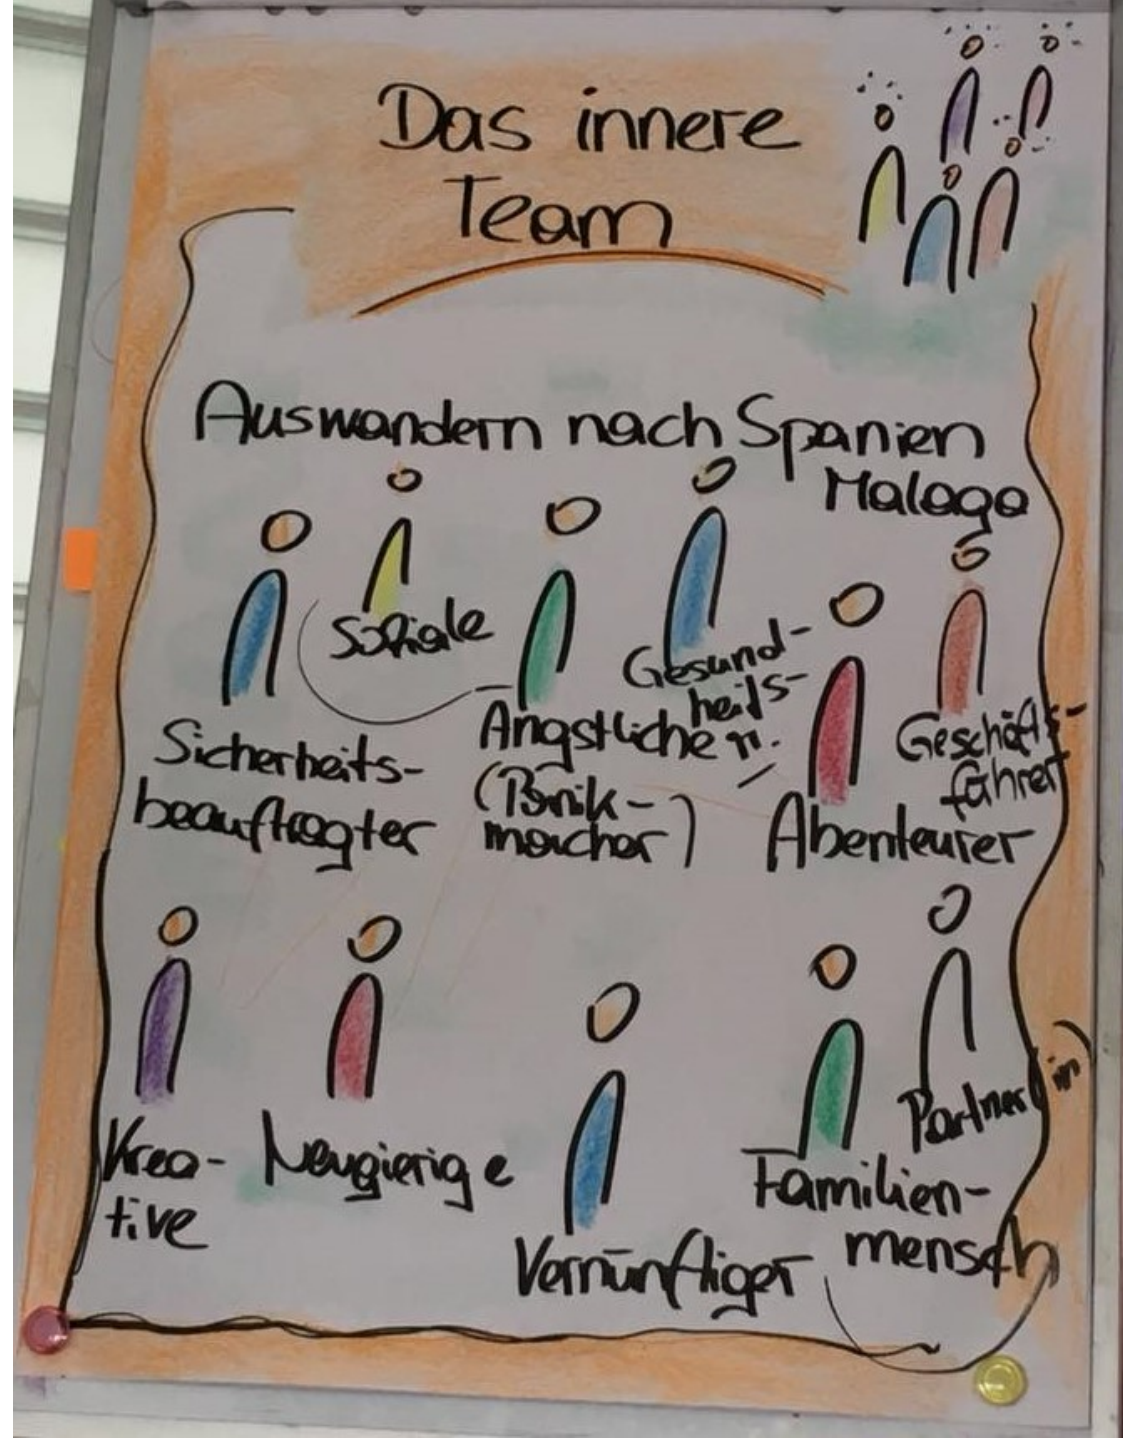 Das innere
Team
Auswandern nach Spanien
Malaga
Soziale
Sicherheits-
beauftragter
Ängstlicher
(Panik-
macher)
Gesund-
heits-
m.
Abenteurer
Geschäfts-
führer
Krea-
tive
Neugierige
Vernünftiger
Familien-
mensch
Partner(in)